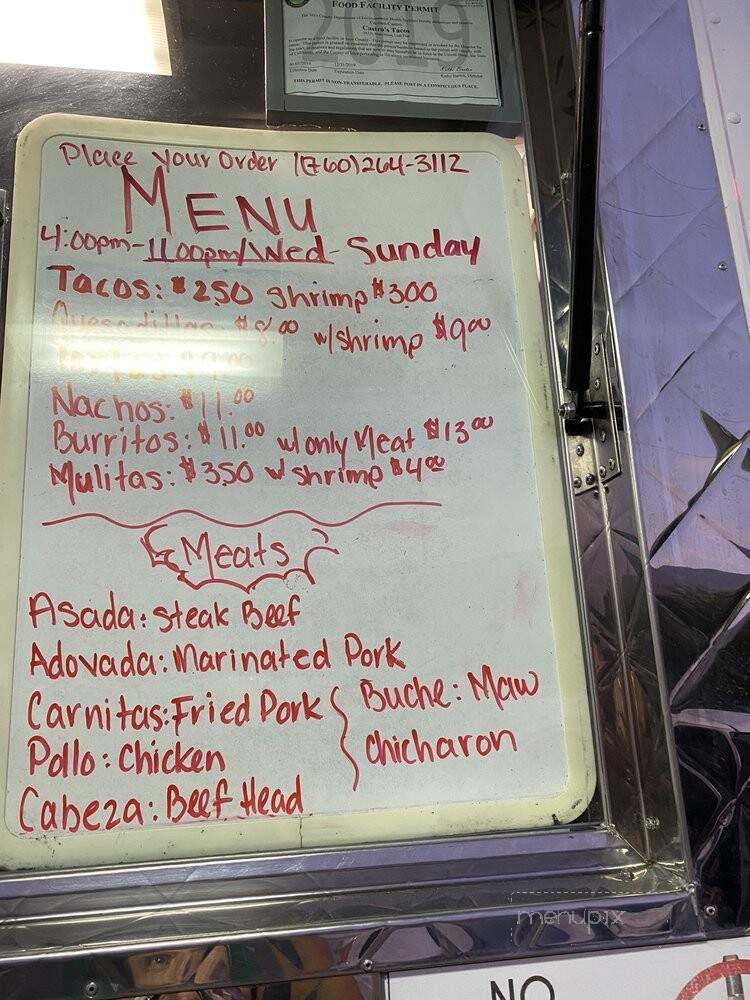 FOOD FACILITY PERMIT
Castro's Tacos
THIS PERMIT IS NON-TRANSFERABLE. PLEASE POST IN A CONSPICUOUS PLACE.
Place Your Order 1(760)264-3112
MENU
4:00pm-11:00pm/Wed- Sunday
Tacos: $2.50 shrimp $3.00
Quesadillas $8.00 w/shrimp $9.00
Tortas: $9.00
Nachos: $11.00
Burritos: $11.00 w/only Meat $13.00
Mulitas: $3.50 w/shrimp $4.00
Meats
Asada: steak Beef
Adovada: Marinated Pork
Carnitas: Fried Pork
Pollo: Chicken
Cabeza: Beef Head
Buche: Maw
chicharon
menupix
NO